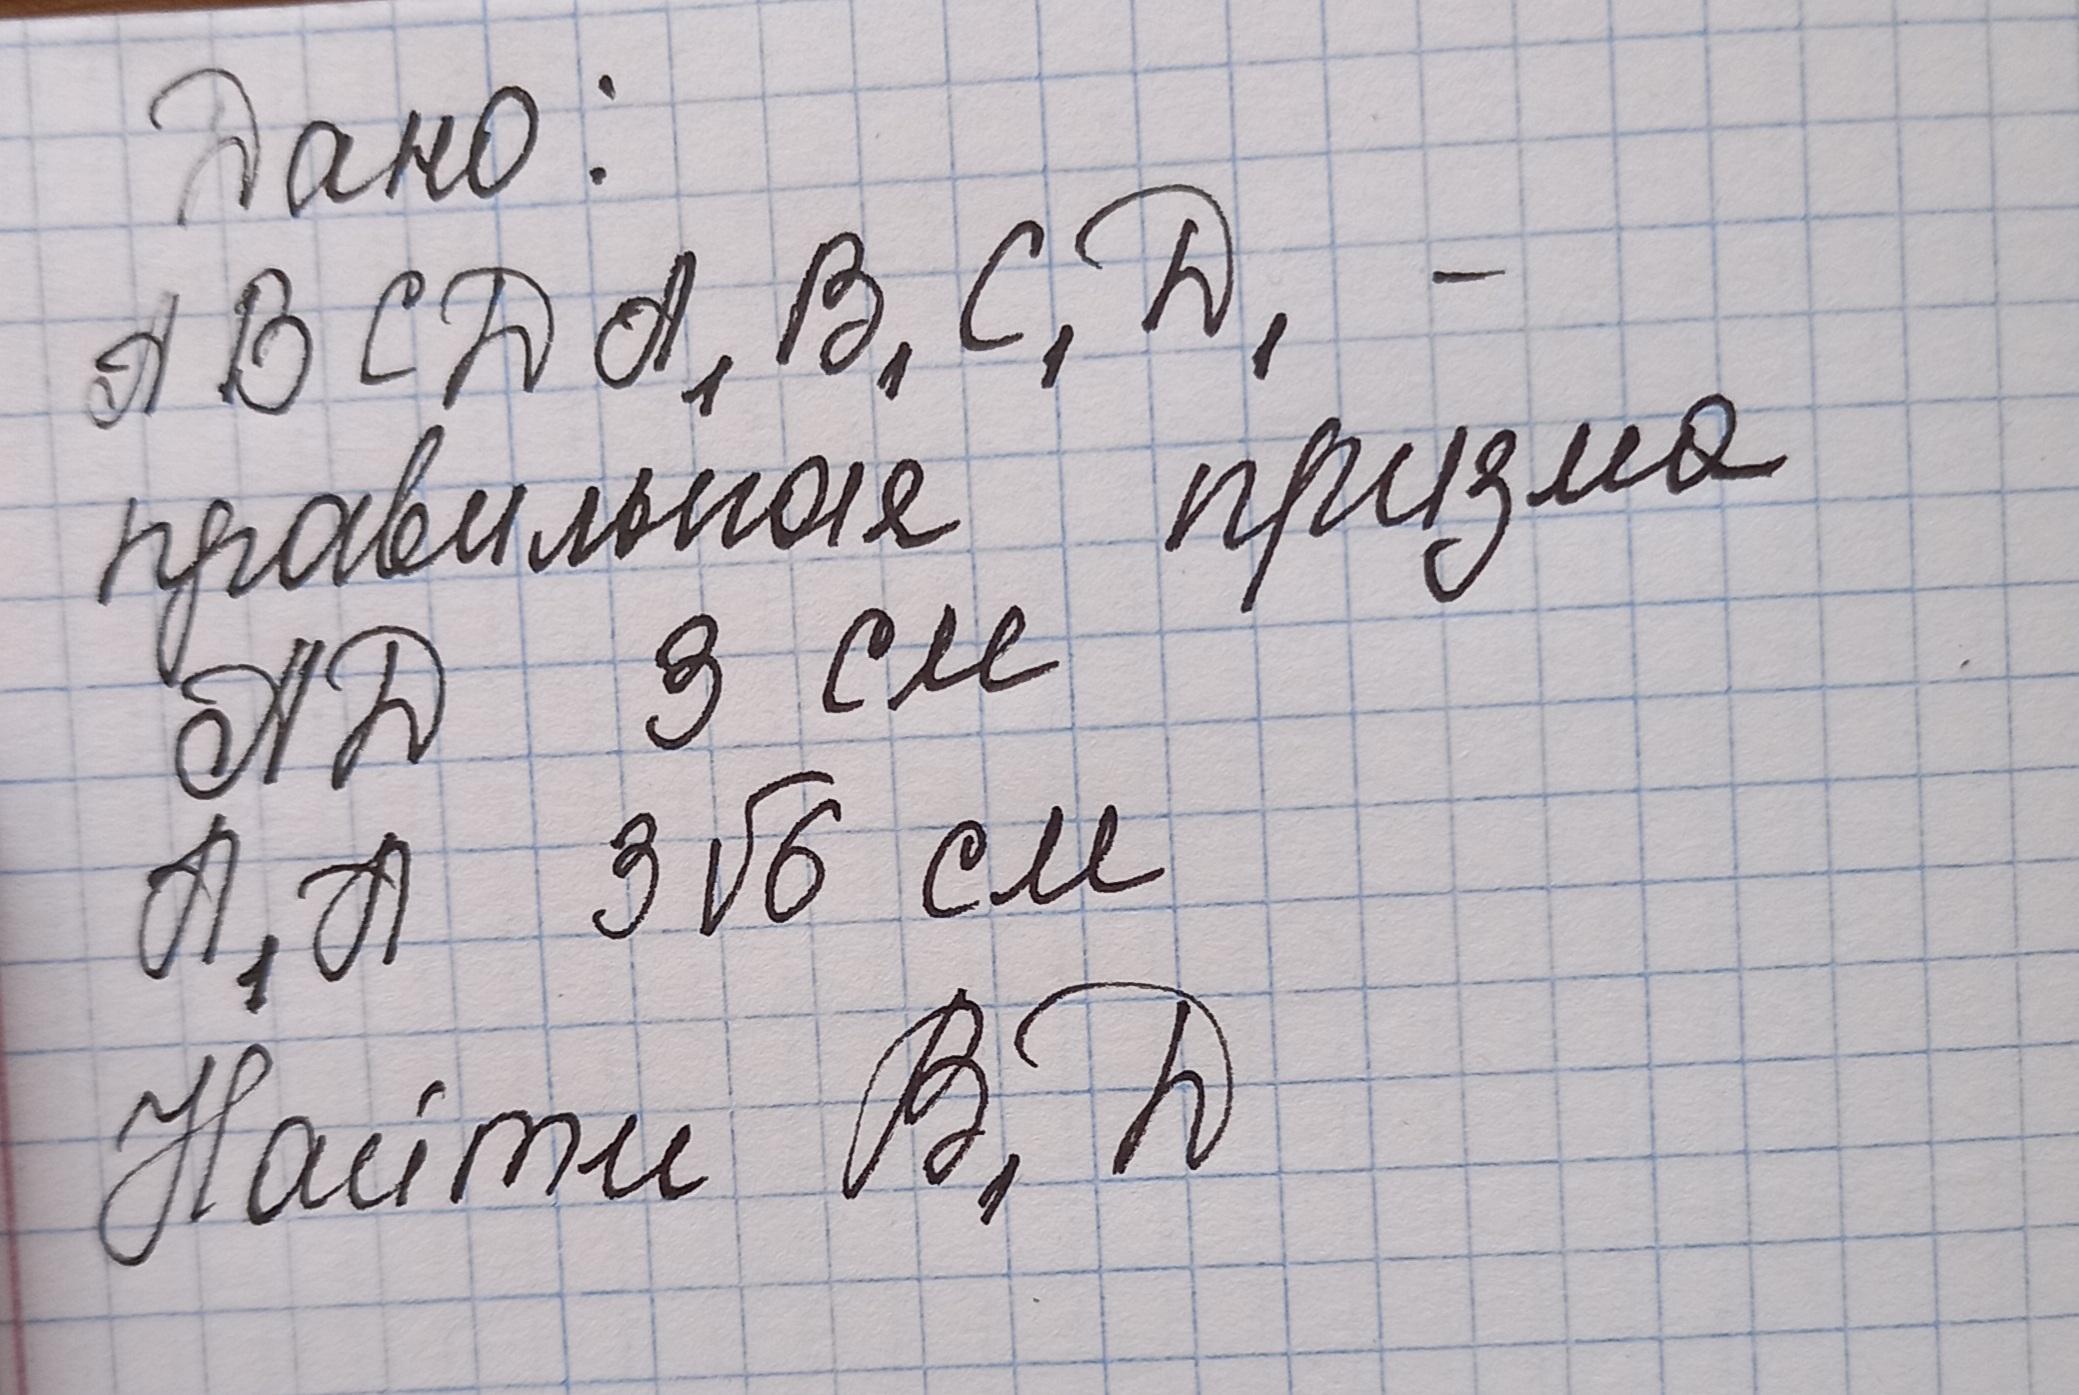 Дано:
ABCDA₁B₁C₁D₁ -
правильная призма
AD 3 см
A₁A 3√6 см
Найти B₁D